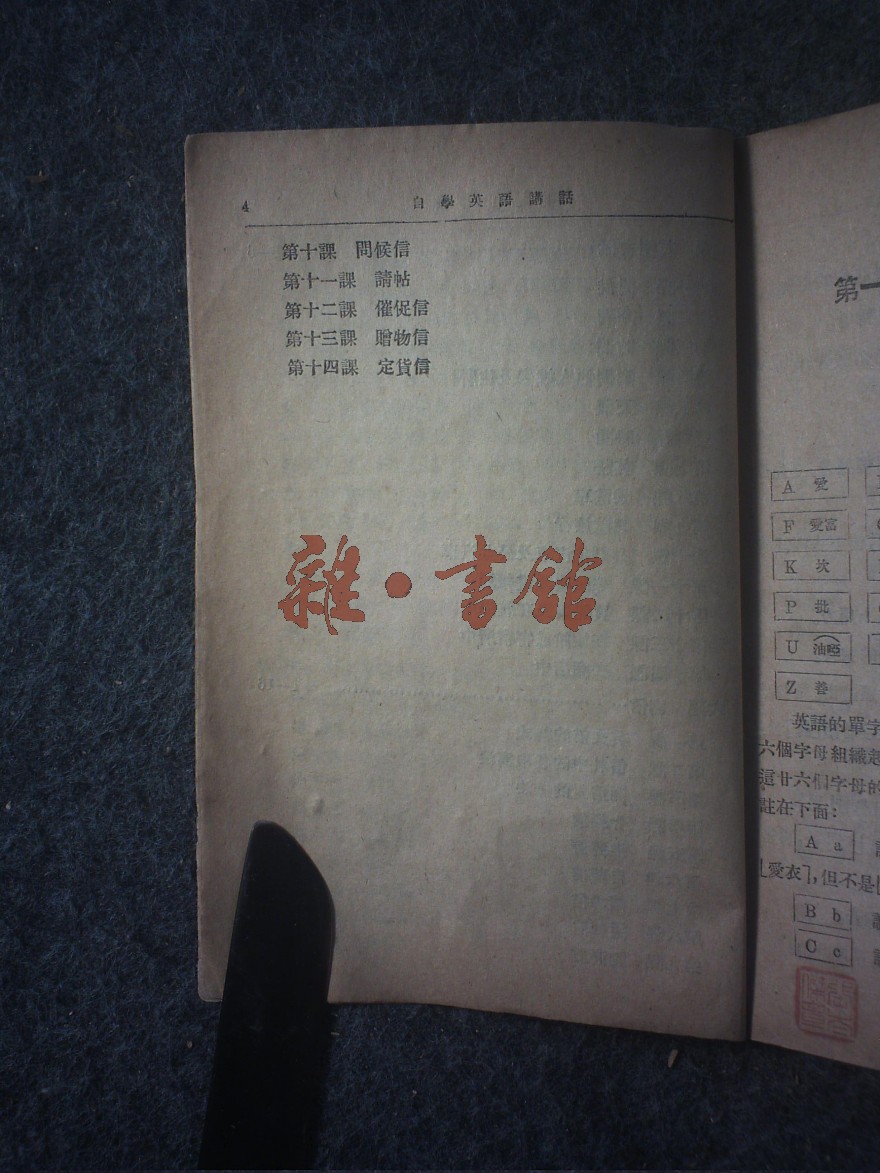 4 自學英語講話
第十課 問候信
第十一課 請帖
第十二課 催促信
第十三課 贈物信
第十四課 定貨信
雜·書館
第一
A 愛
F 愛富
K 坎
P 批
U 油啞
Z 善
英語的單字
六個字母組織起
這廿六個字母的
註在下面:
A a
「愛衣」,但不是
B b
C c